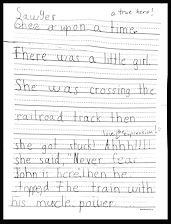 Sawyer
a true hero!
Onez a upon a time.
There was a little girl.
She was crossing the
railroad track then
she got stuck! Ahhh!!!!
she said, "Never fear
John is here. then he
stopped The train with
his muscle power.